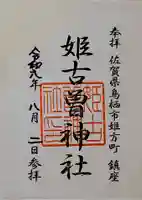 奉拝 佐賀県鳥栖市姫方町 鎮座
姫古曽神社
令和元年 八月 二日 参拝